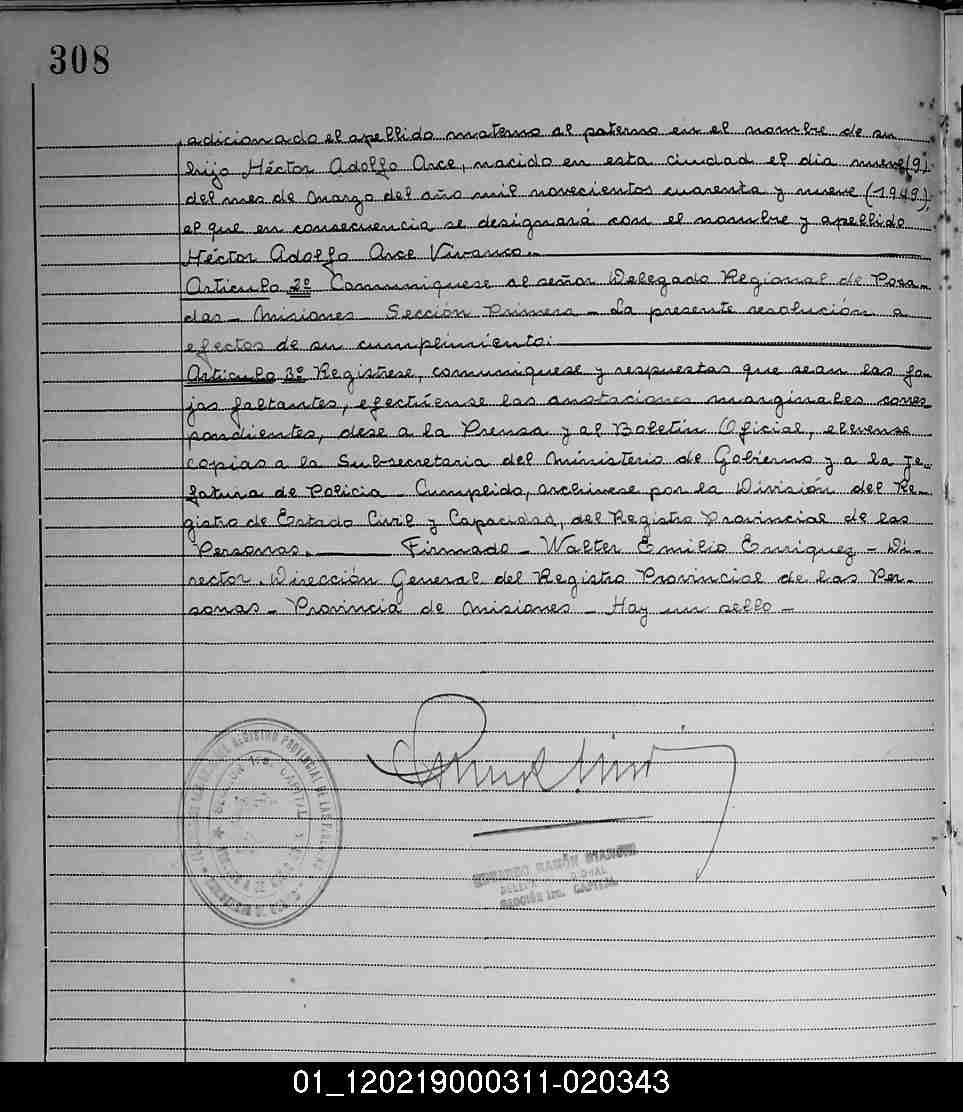 308
adicionado el apellido materno al paterno en el nombre de su
hijo Héctor Adolfo Arce, nacido en esta ciudad el día nueve (9)
del mes de Marzo del año mil novecientos cuarenta y nueve (1949),
el que en consecuencia se designará con el nombre y apellido
Héctor Adolfo Arce Vivanco.-
Artículo 2º Comuníquese al señor Delegado Regional de Posa-
das - Misiones - Sección Primera - La presente resolución a
efectos de su cumplimiento.
Artículo 3º Regístrese, comuníquese y respuestas que sean las fo-
jas faltantes, efectúense las anotaciones marginales corres
pondientes, dese a la Prensa y al Boletín Oficial, elevense
copias a la Subsecretaria del Ministerio de Gobierno y a la Je-
fatura de Policia - Cumplido, archivese por la División del Re-
gistro de Estado Civil y Capacidad, del Registro Provincial de las
Personas. Firmado - Walter Emilio Enriquez - Di-
rector. Dirección General del Registro Provincial de las Per-
sonas - Provincia de Misiones - Hay un sello -
REGISTRO PROVINCIAL DE LAS
SECCION 1ra. CAPITAL
RAMÓN BIANCHI
SECCIÓN 1ra. CAPITAL
01_120219000311-020343